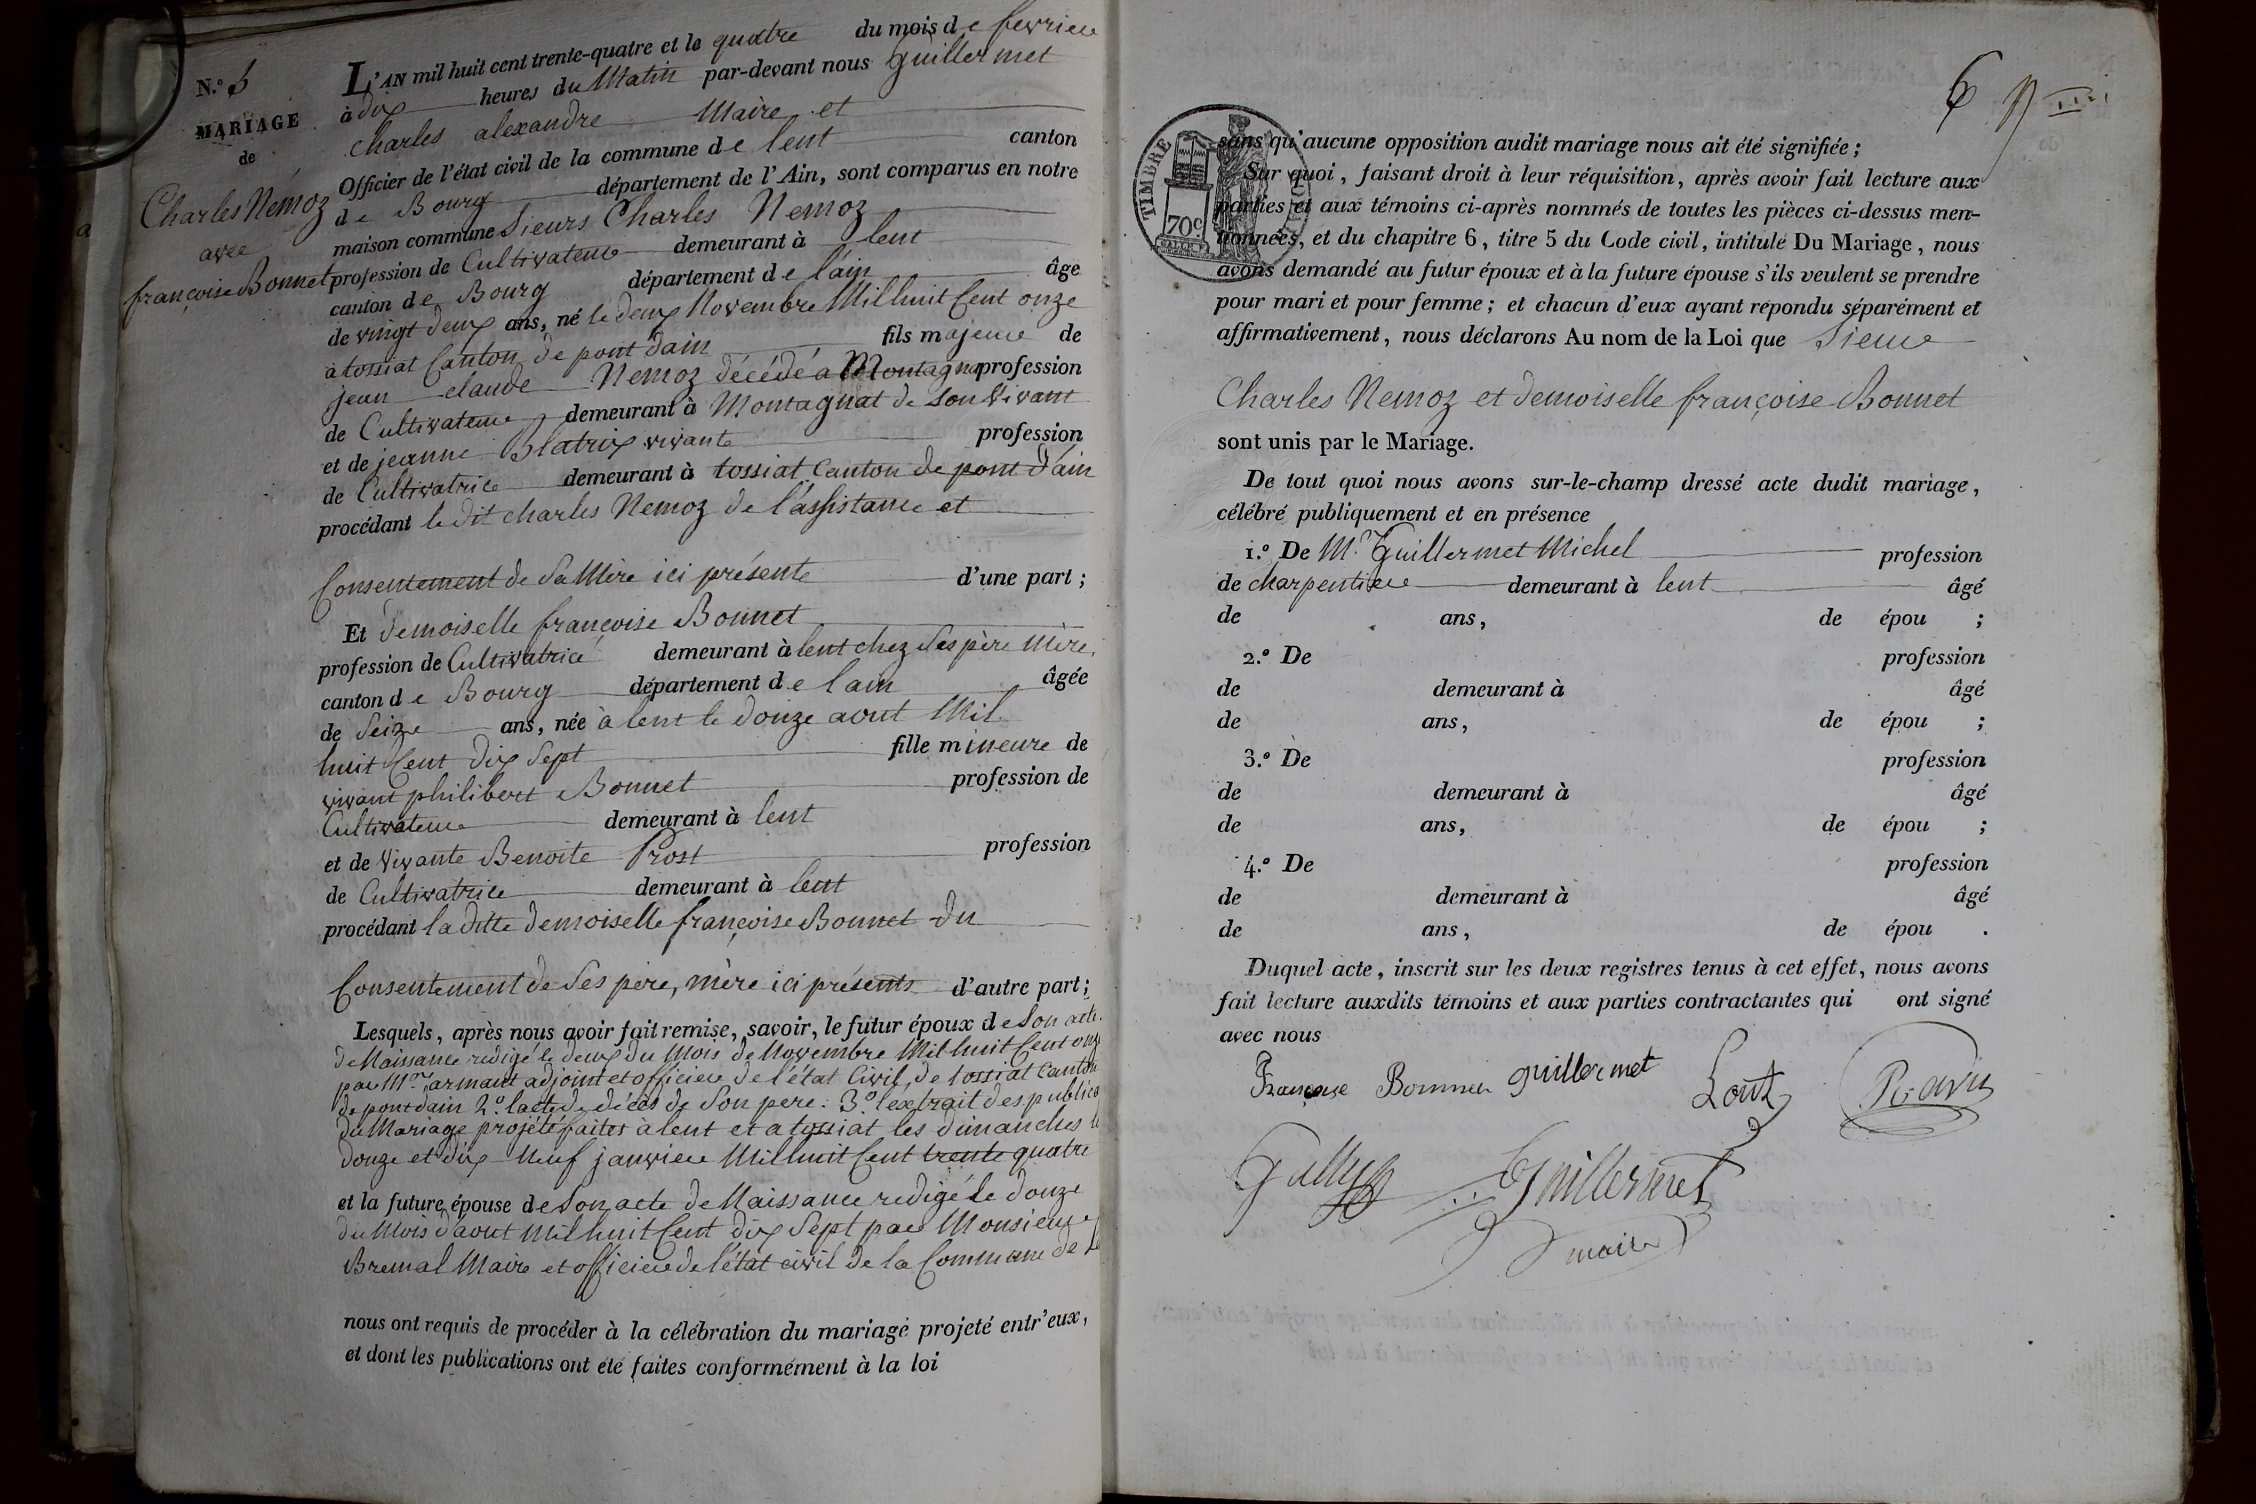 N.º 5
MARIAGE
de
Charles Nemoz
avec
françoise Bonnet
L'AN mil huit cent trente-quatre et le quatre du mois de fevrier
à dix heures du Matin par-devant nous guillermet
charles alexandre Maire et
Officier de l'état civil de la commune de lent canton
de Bourg département de l'Ain, sont comparus en notre
maison commune Sieurs Charles Nemoz
profession de Cultivateur demeurant à lent
canton de Bourg département de l'ain âgé
de vingt deux ans, né le deux Novembre Mil huit Cent onze
a tossiat Canton de pont dain fils majeur de
jean claude Nemoz décédé a Montagna profession
de Cultivateur demeurant à Montagnat de Son Vivant
et de jeanne Blatrix vivante profession
de Cultivatrice demeurant à tossiat Canton de pont d'ain
procédant le dit charles Nemoz de l'assistance et
Consentement de Sa Mère ici présente d'une part ;
Et demoiselle françoise Bonnet
profession de Cultivatrice demeurant à lent chez Ses père mère,
canton de Bourg département de lain âgée
de Seize ans, née à lent le douze aout Mil
huit Cent dix Sept fille mineure de
vivant philibert Bonnet profession de
Cultivateur demeurant à lent
et de Vivante Benoite Prost profession
de Cultivatrice demeurant à lent
procédant la ditte demoiselle françoise Bonnet du
Consentement de Ses père, mère ici présents d'autre part ;
Lesquels, après nous avoir fait remise, savoir, le futur époux de Son acte
de Naissance redigé le deux du Mois de Novembre Mil huit Cent onze
par Mr armant adjoint et officier de l'état Civil de tossiat Canton
de pont dain 2.º lacte de décès de Son pere. 3.º lextrait des publica
du Mariage projété faites a lent et a tossiat les dimanches
douze et dix Neuf janvier Mil huit Cent trente quatre
et la future épouse de Son acte de Naissance redigé le douze
du Mois d'aout Mil huit Cent dix Sept par Monsieur
Bremal Maire et officier de l'état civil de la Commune de
nous ont requis de procéder à la célébration du mariage projeté entr'eux,
et dont les publications ont été faites conformément à la loi
6
TIMBRE ROYAL
70c
sans qu'aucune opposition audit mariage nous ait été signifiée ;
Sur quoi, faisant droit à leur réquisition, après avoir fait lecture aux
parties et aux témoins ci-après nommés de toutes les pièces ci-dessus men-
tionnées, et du chapitre 6, titre 5 du Code civil, intitulé Du Mariage, nous
avons demandé au futur époux et à la future épouse s'ils veulent se prendre
pour mari et pour femme ; et chacun d'eux ayant répondu séparément et
affirmativement, nous déclarons Au nom de la Loi que Sieur
Charles Nemoz et demoiselle françoise Bonnet
sont unis par le Mariage.
De tout quoi nous avons sur-le-champ dressé acte dudit mariage,
célébré publiquement et en présence
1.º De Mr Guillermet Michel profession
de charpentier demeurant à lent âgé
de ans, de épou ;
2.º De profession
de demeurant à âgé
de ans, de épou ;
3.º De profession
de demeurant à âgé
de ans, de épou ;
4.º De profession
de demeurant à âgé
de ans, de épou .
Duquel acte, inscrit sur les deux registres tenus à cet effet, nous avons
fait lecture auxdits témoins et aux parties contractantes qui ont signé
avec nous
guillermet
Guillermet
maire